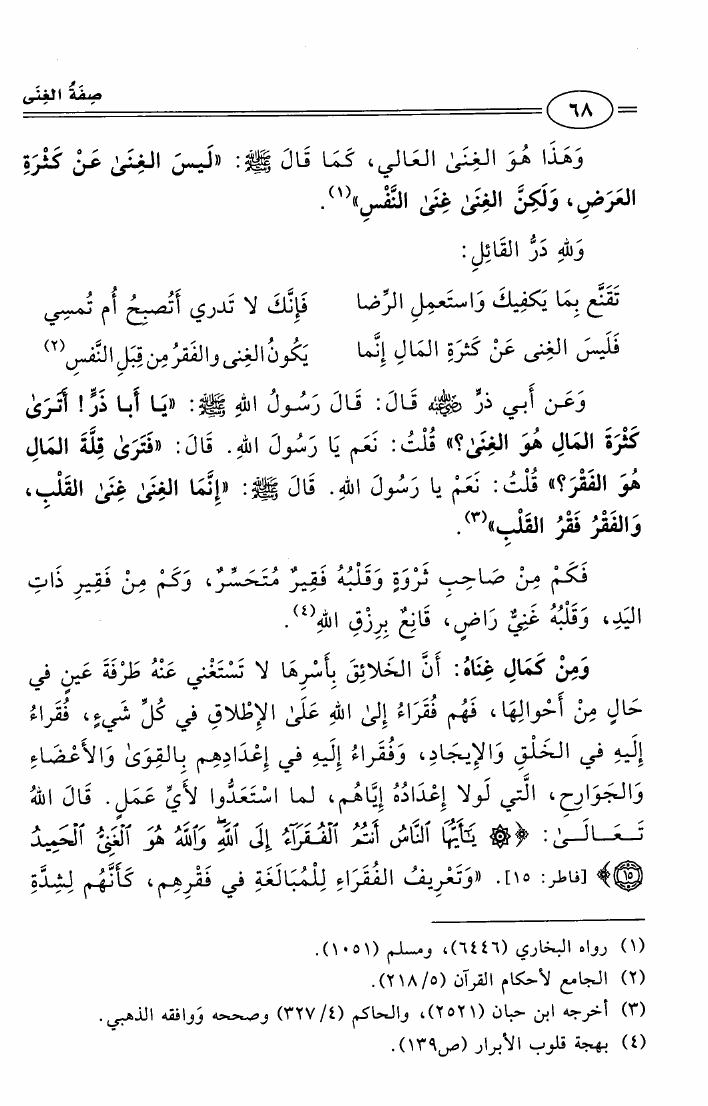 صِفَةُ الغِنَى
٦٨
وَهَذَا هُوَ الغِنَىٰ العَالي، كَمَا قَالَ ﷺ: «لَيسَ الغِنَىٰ عَنْ كَثْرَةِ
العَرَضِ، وَلَكِنَّ الغِنَىٰ غِنَىٰ النَّفْسِ»(١).
وَللهِ دَرُّ القَائِلِ:
تَقَنَّع بِمَا يَكفِيكَ وَاستَعمِلِ الرِّضا فَإِنَّكَ لا تَدري أَتُصبِحُ أَم تُمسِي
فَلَيسَ الغِنى عَنْ كَثرَةِ المَالِ إِنَّما يَكُونُ الغِنى والفَقرُ مِن قِبَلِ النَّفسِ(٢)
وَعَن أَبي ذَرٍّ رضي الله عنه قَالَ: قَالَ رَسُولُ اللهِ ﷺ: «يَا أَبا ذَرٍّ! أَتَرَىٰ
كَثْرَةَ المَالِ هُوَ الغِنَىٰ؟» قُلْتُ: نَعَم يَا رَسُولَ اللهِ. قَالَ: «فَتَرَىٰ قِلَّةَ المَالِ
هُوَ الفَقْرَ؟» قُلْتُ: نَعَمْ يا رَسُولَ اللهِ. قَالَ ﷺ: «إِنَّمَا الغِنَىٰ غِنَىٰ القَلْبِ،
وَالفَقْرُ فَقْرُ القَلْبِ»(٣).
فَكَمْ مِنْ صَاحِبِ ثَرْوَةٍ وَقَلْبُهُ فَقِيرٌ مُتَحَسِّرٌ، وَكَمْ مِنْ فَقِيرِ ذَاتِ
اليَدِ، وَقَلْبُهُ غَنِيٌّ رَاضٍ، قَانِعٌ بِرِزْقِ اللهِ(٤).
وَمِنْ كَمَالِ غِنَاهُ: أَنَّ الخَلَائِقَ بِأَسْرِهَا لَا تَسْتَغْني عَنْهُ طَرْفَةَ عَينٍ في
حَالٍ مِنْ أَحْوالِهَا، فَهُم فُقَرَاءُ إِلىٰ اللهِ عَلَىٰ الإِطْلاقِ في كُلِّ شَيءٍ، فُقَراءُ
إِلَيهِ في الخَلْقِ وَالإِيجَادِ، وَفُقَراءُ إِلَيهِ في إِعْدَادِهِم بِالقِوَىٰ وَالأَعْضَاءِ
وَالجَوَارِحِ، الَّتي لَولا إِعْدَادُهُ إِيَّاهُم، لما اسْتَعَدُّوا لأَيِّ عَمَلٍ. قَالَ اللهُ
تَعَالَىٰ: ﴿۞ يَٰٓأَيُّهَا ٱلنَّاسُ أَنتُمُ ٱلْفُقَرَآءُ إِلَى ٱللَّهِۖ وَٱللَّهُ هُوَ ٱلْغَنِىُّ ٱلْحَمِيدُ
١٥﴾ [فاطر: ١٥]. «وَتَعْرِيفُ الفُقَرَاءِ لِلْمُبَالَغَةِ في فَقْرِهِم، كَأَنَّهُم لِشِدَّةِ
(١) رواه البخاري (٦٤٤٦)، ومسلم (١٠٥١).
(٢) الجامع لأحكام القرآن (٢١٨/٥).
(٣) أخرجه ابن حبان (٢٥٢١)، والحاكم (٣٢٧/٤) وصححه وَوافقه الذهبي.
(٤) بهجة قلوب الأبرار (ص١٣٩).